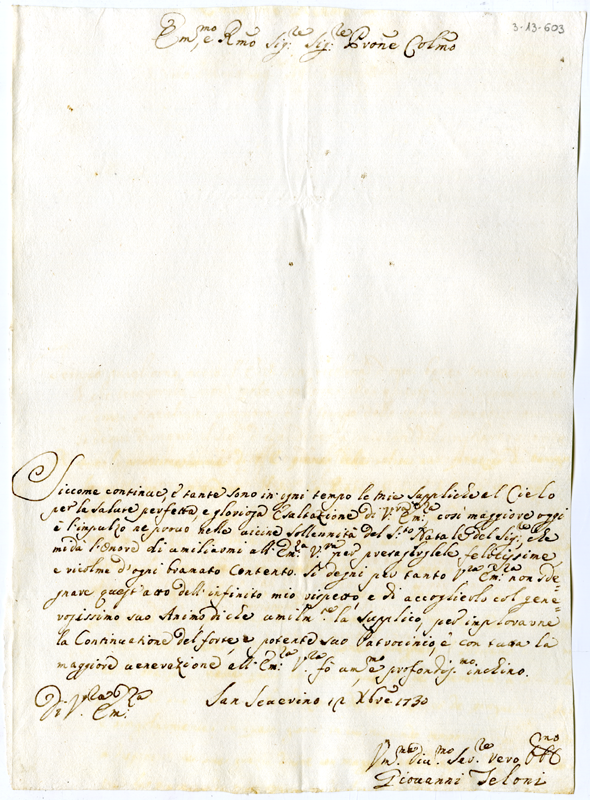 3-13-603
Em.mo e Rmo Sig.re Sig.re Prone Colmo
Siccome continue, e tante sono in ogni tempo le mie Suppliche al Cielo
per la salute perfetta, e gloriosa Esaltazione di V.ra Em.za così maggiore oggi
è l'impulzo ne provo nelle vicine sollennità del S.to Natale del Sig.re, che
mi dà l'onore di umiliarmi all'Em.za V.ra per presagirgliele felicissime
e ricolme d'ogni bramato Contento. Si degni per tanto V.ra Em.za non sde=
gnare quest'atto dell'infinito mio rispetto, e di accoglierlo col gene=
rosissimo suo Animo di che umilm.te la supplico, per implorarne
la Continuatione del forte, e potente suo Patrocinio, e con tutta la
maggiore venerazione all'Em.za V.ra fò um.mo e profondis.mo inchino.
Di V.ra Em.za
San Severino 12 Xbre 1730
Um.mo Div.mo Ser.re vero Obb.mo
Giovanni Teloni